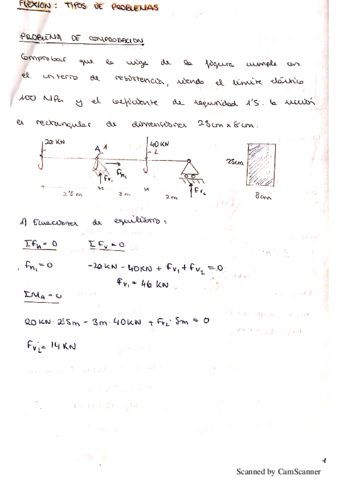 FLEXION: TIPOS DE PROBLEMAS
PROBLEMA DE COMPROBACION
Comprobar que la viga de la figura cumple con
el criterio de resistencia, siendo el límite elástico
100 MPa y el coeficiente de seguridad 1'5. la sección
es rectangular de dimensiones 25cm x 8cm.
20 KN A 1 40 KN
L
Fv1 FH1 Fv2
2'5m 3m 2m
25cm
8cm
1) Ecuaciones de equilibrio:
ΣFH = 0 ΣFv = 0
FH1 = 0 -20KN - 40KN + Fv1 + Fv2 = 0
Fv1 = 46 KN
ΣMA = 0
20KN · 2'5m - 3m · 40KN + Fv2 · 5m = 0
Fv2 = 14 KN
1
Scanned by CamScanner